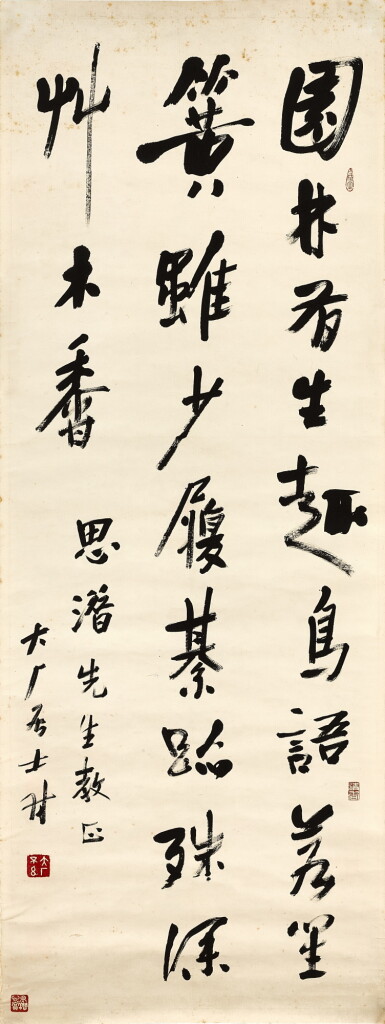 園林有生趣鳥語若笙
簧雖少履綦跡殊深
艸木香
思潛先生教正
大厂居士